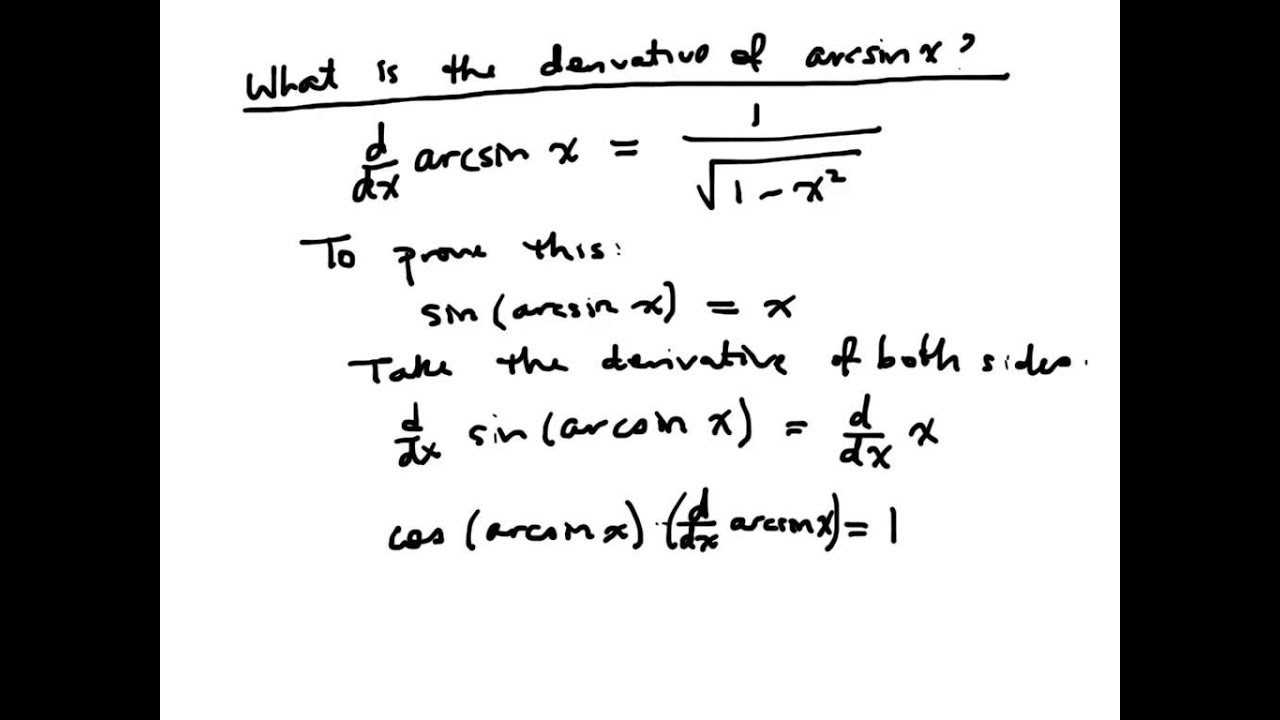 What is the derivative of arcsin x?
d/dx arcsin x = 1/√(1 - x²)
To prove this:
sin (arcsin x) = x
Take the derivative of both sides.
d/dx sin (arcsin x) = d/dx x
cos (arcsin x) · (d/dx arcsin x) = 1